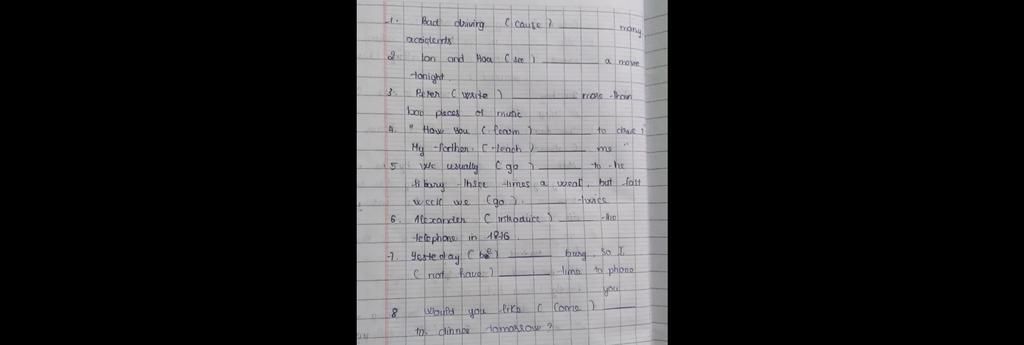 1. Bad driving (cause) ____ many
accidents
2. Lan and Hoa (see) ____ a movie
tonight.
3. Peter (write) ____ more than
pieces of music
4. " How you (learn) ____ to drive?
My farther (teach) ____ me "
5 We usually (go) ____ to the
libary three times a week, but last
week we (go) ____ twice
6. Alexander (introduce) ____ the
telephone in 1876.
7. Yesteday (be) ____ busy, so I
(not have) ____ time to phone
you
8 Would you like (come) ____
to dinner tomorrow?